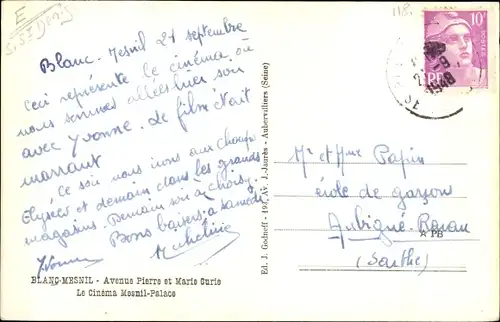 E
S. St Denis
118
10F
POSTES
RF
Blanc-Mesnil 21 septembre
Ceci représente le cinéma où
nous sommes allées hier soir
avec Yvonne. Le film était
marrant
Ce soir nous irons aux Champs
Elysées et demain dans les grands
magasins. Demain soir à choisy
Bons baisers à samedi
Micheline
Yvonne
BLANC-MESNIL - Avenue Pierre et Marie Curie
Le Cinéma Mesnil-Palace
Ed. J. Godneff - 193, Av. J.-Jaurès - Aubervilliers (Seine)
Mr et Mme Papin
école de garçon
Aubigné-Racan
A PB
(Sarthe)